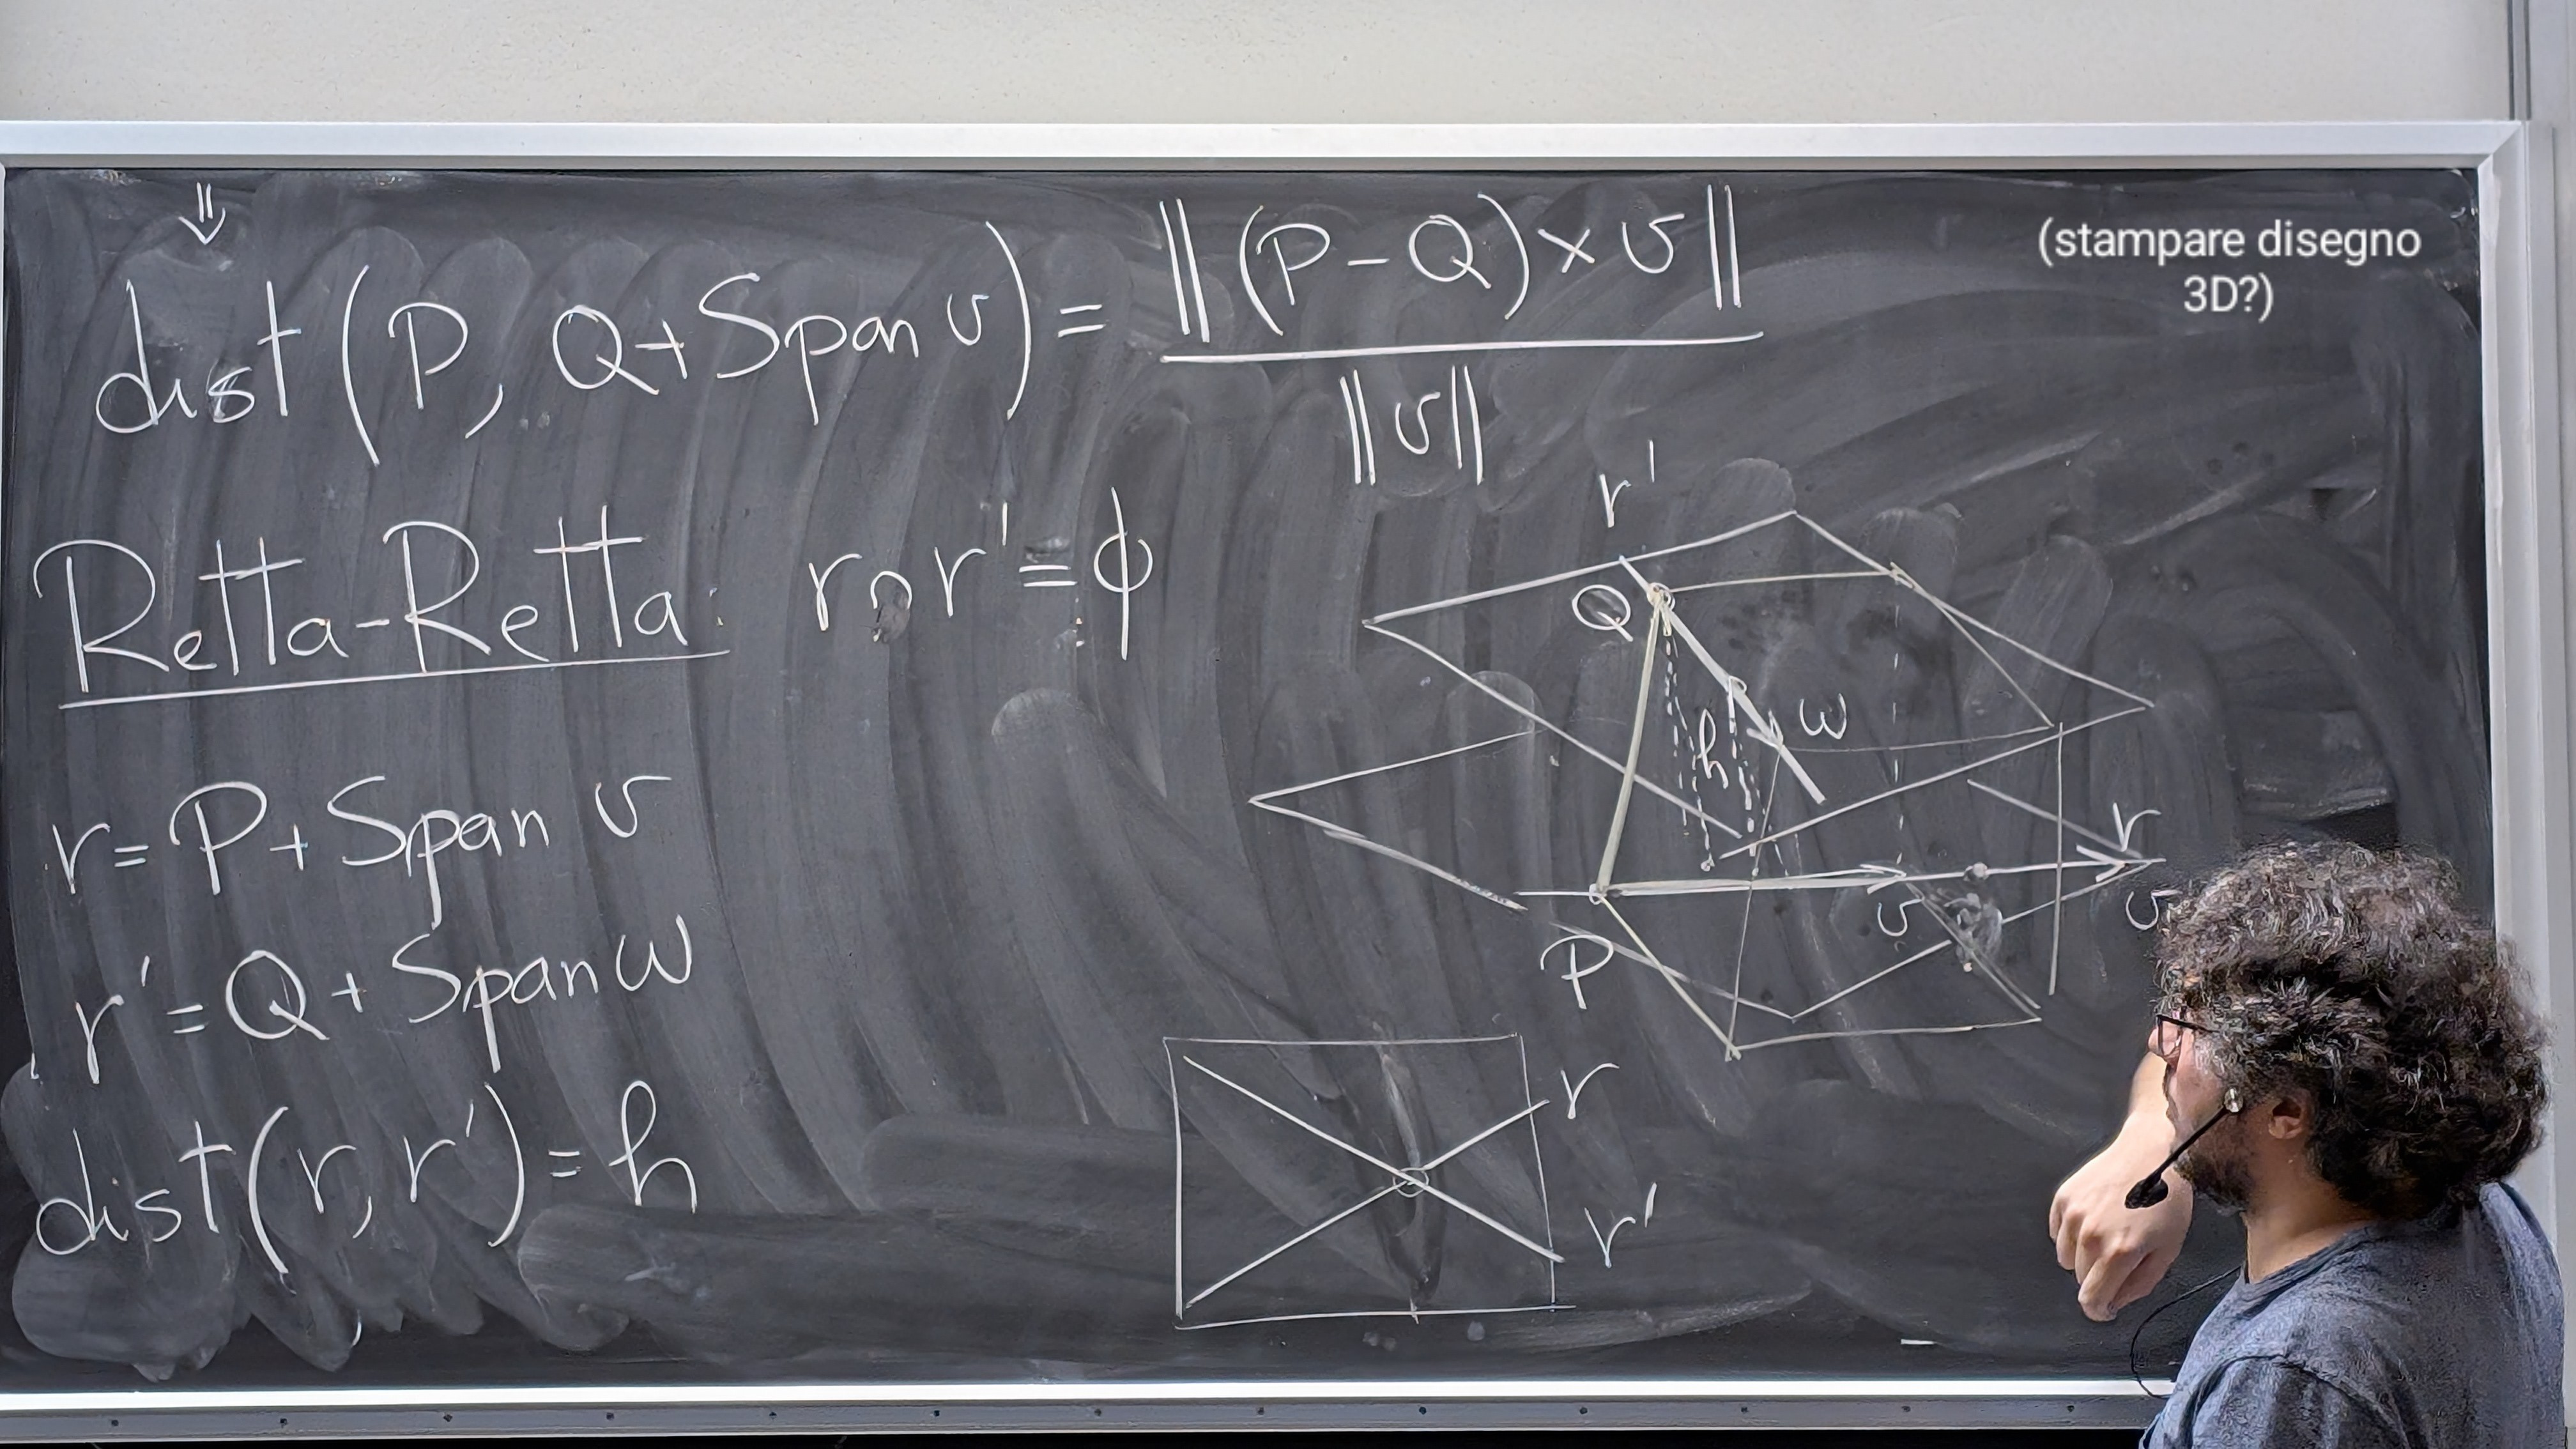 ⇓
dist (P, Q+Span v) = ‖(P-Q)×v‖
‖v‖
(stampare disegno
3D?)
Retta-Retta: r∩r'=ϕ
r = P+Span v
r' = Q+Span w
dist(r, r') = h
r'
Q
w
h
r
v
v
P
r
r'